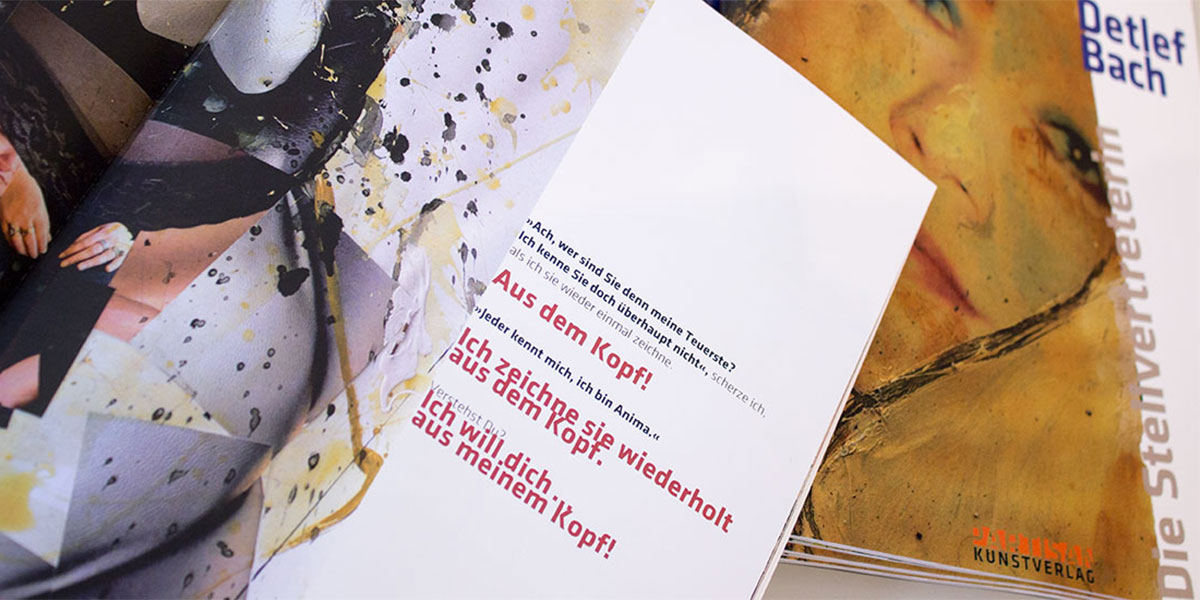 »Ach, wer sind Sie denn meine Teuerste?
Ich kenne Sie doch überhaupt nicht«, scherze ich,
als ich sie wieder einmal zeichne.
Aus dem Kopf!
»Jeder kennt mich, ich bin Anima.«
Ich zeichne sie wiederholt
aus dem Kopf.
Verstehst Du?
Ich will dich . .
aus meinem Kopf!
Detlef
Bach
Die Stellvertreterin
PARTISAN
KUNSTVERLAG